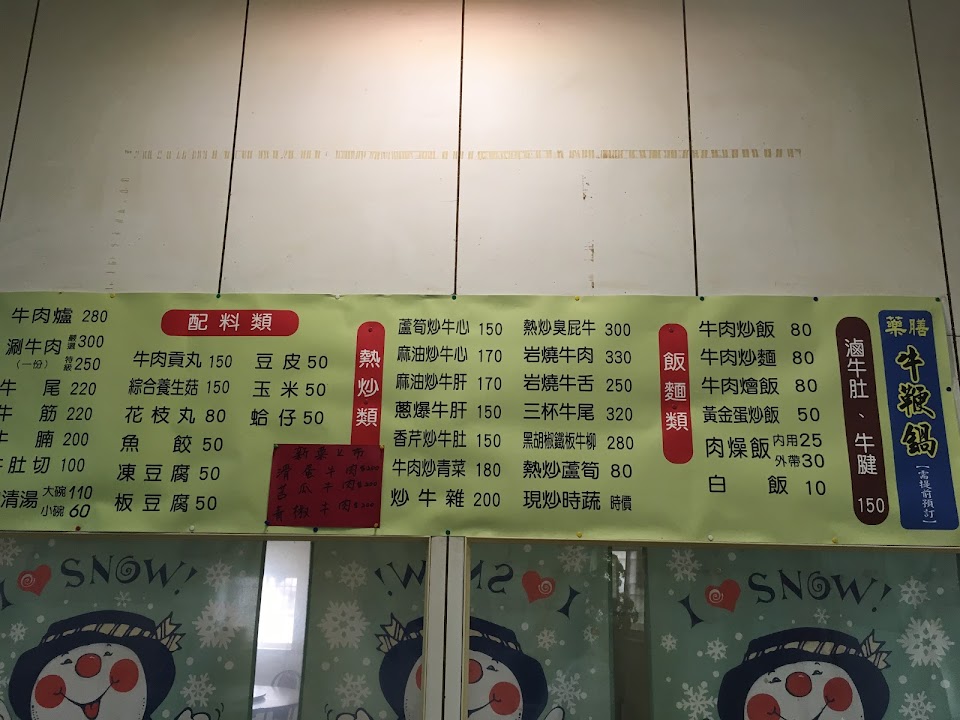 牛肉爐 280
涮牛肉 嚴選300
(一份) 特級250
牛尾 220
牛筋 220
牛腩 200
牛肚切 100
清湯 大碗110
小碗 60
配料類
牛肉貢丸 150
綜合養生菇 150
花枝丸 80
魚餃 50
凍豆腐 50
板豆腐 50
豆皮 50
玉米 50
蛤仔 50
新菜上市
滑蛋牛肉$200
苦瓜牛肉$200
青椒牛肉$200
熱炒類
蘆筍炒牛心 150
麻油炒牛心 170
麻油炒牛肝 170
蔥爆牛肝 150
香芹炒牛肚 150
牛肉炒青菜 180
炒牛雜 200
熱炒臭屁牛 300
岩燒牛肉 330
岩燒牛舌 250
三杯牛尾 320
黑胡椒鐵板牛柳 280
熱炒蘆筍 80
現炒時蔬 時價
飯麵類
牛肉炒飯 80
牛肉炒麵 80
牛肉燴飯 80
黃金蛋炒飯 50
肉燥飯 內用25
外帶30
白飯 10
滷牛肚、牛腱 150
藥膳
牛鞭鍋
【需提前預訂】
I SNOW!
I SNOW!
I SNOW!